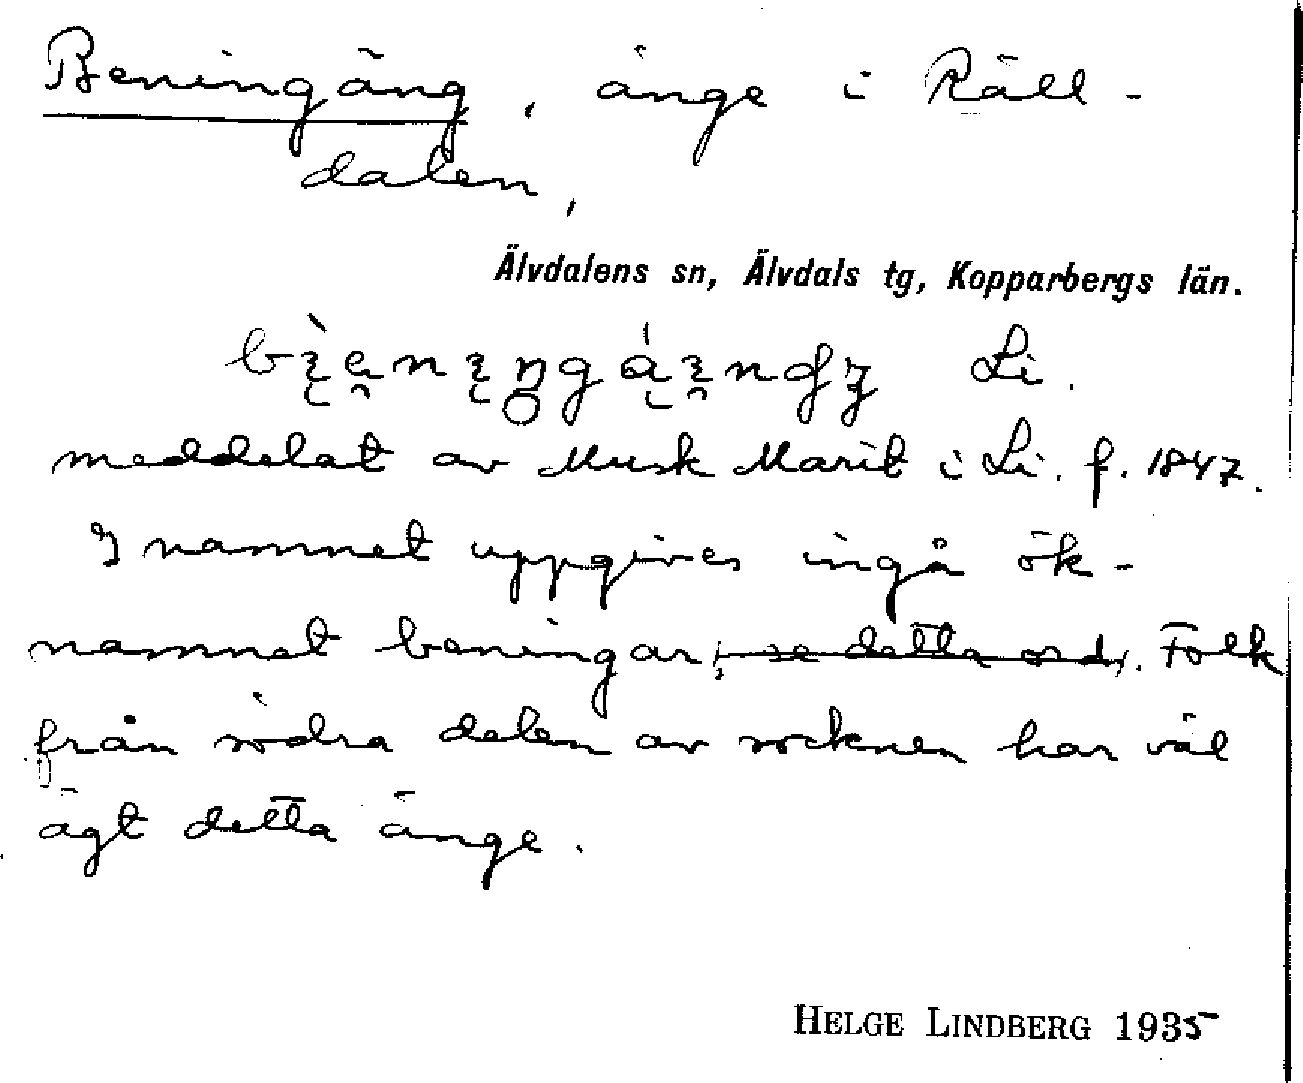 Beningäng, änge i Räll-
dalen,
Älvdalens sn, Älvdals tg, Kopparbergs län.
Li.
meddelat av Musk Marit i Li. f. 1847.
I namnet uppgives ingå ök-
namnet beningar, se detta ord,. Folk
från södra delen av socknen har väl
ägt detta änge.
HELGE LINDBERG 1935